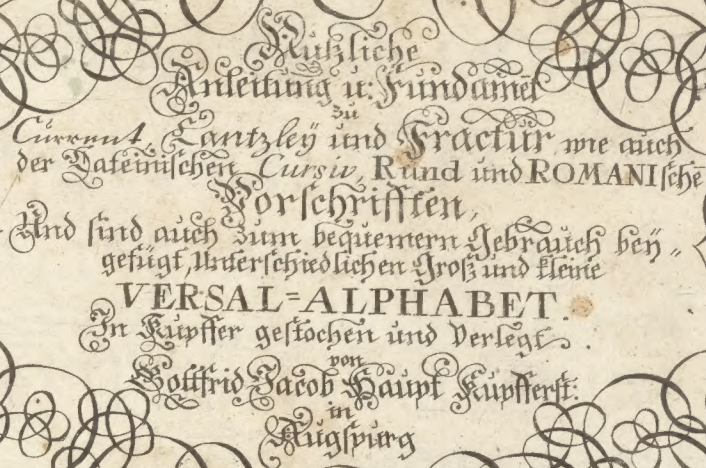 Nutzliche
Anleitung u: Fundament
zu
Current, Cantzley und Fractur, wie auch
der Lateinischen Cursiv, Rund und ROMANIsche
Vorschrifften,
Und sind auch zum bequemern Gebrauch bey„
gefügt, Unterschiedlichen Groß und kleine
VERSAL=ALPHABET.
In Kupffer gestochen und Verlegt
von
Gottfrid Jacob Haupt Kupfferst:
in
Augspurg